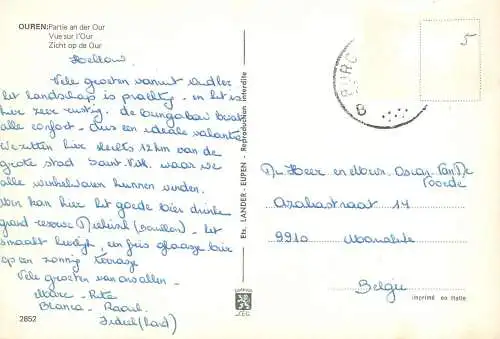 OUREN: Partie an der Our
Vue sur l'Our
Zicht op de Our
Hallow
Vele groeten vanuit Audler
het landschap is prachtig en het is
hier zeer rustig. de bungalow bevat
alle confort - dus een ideale vakantie
We zitten hier slechts 12 km van de
grote stad Saint. Vith. waar we
alle winkelwaren kunnen vinden.
Men kan hier het goede bier drinke
grand reserve
smaakt heerlijk, een fris glaasje bier
op en zonnig terrasje
Vele groeten van ons allen.
Marc - Rita
Bianca - Raoul.
2852
Ets. LANDER - EUPEN - Reproduction interdite
LEC
5
B
De Heer en Mevr. Van De
Voorde
Azaleastraat 14
9910 Mariakerke
België
imprimé en Italie